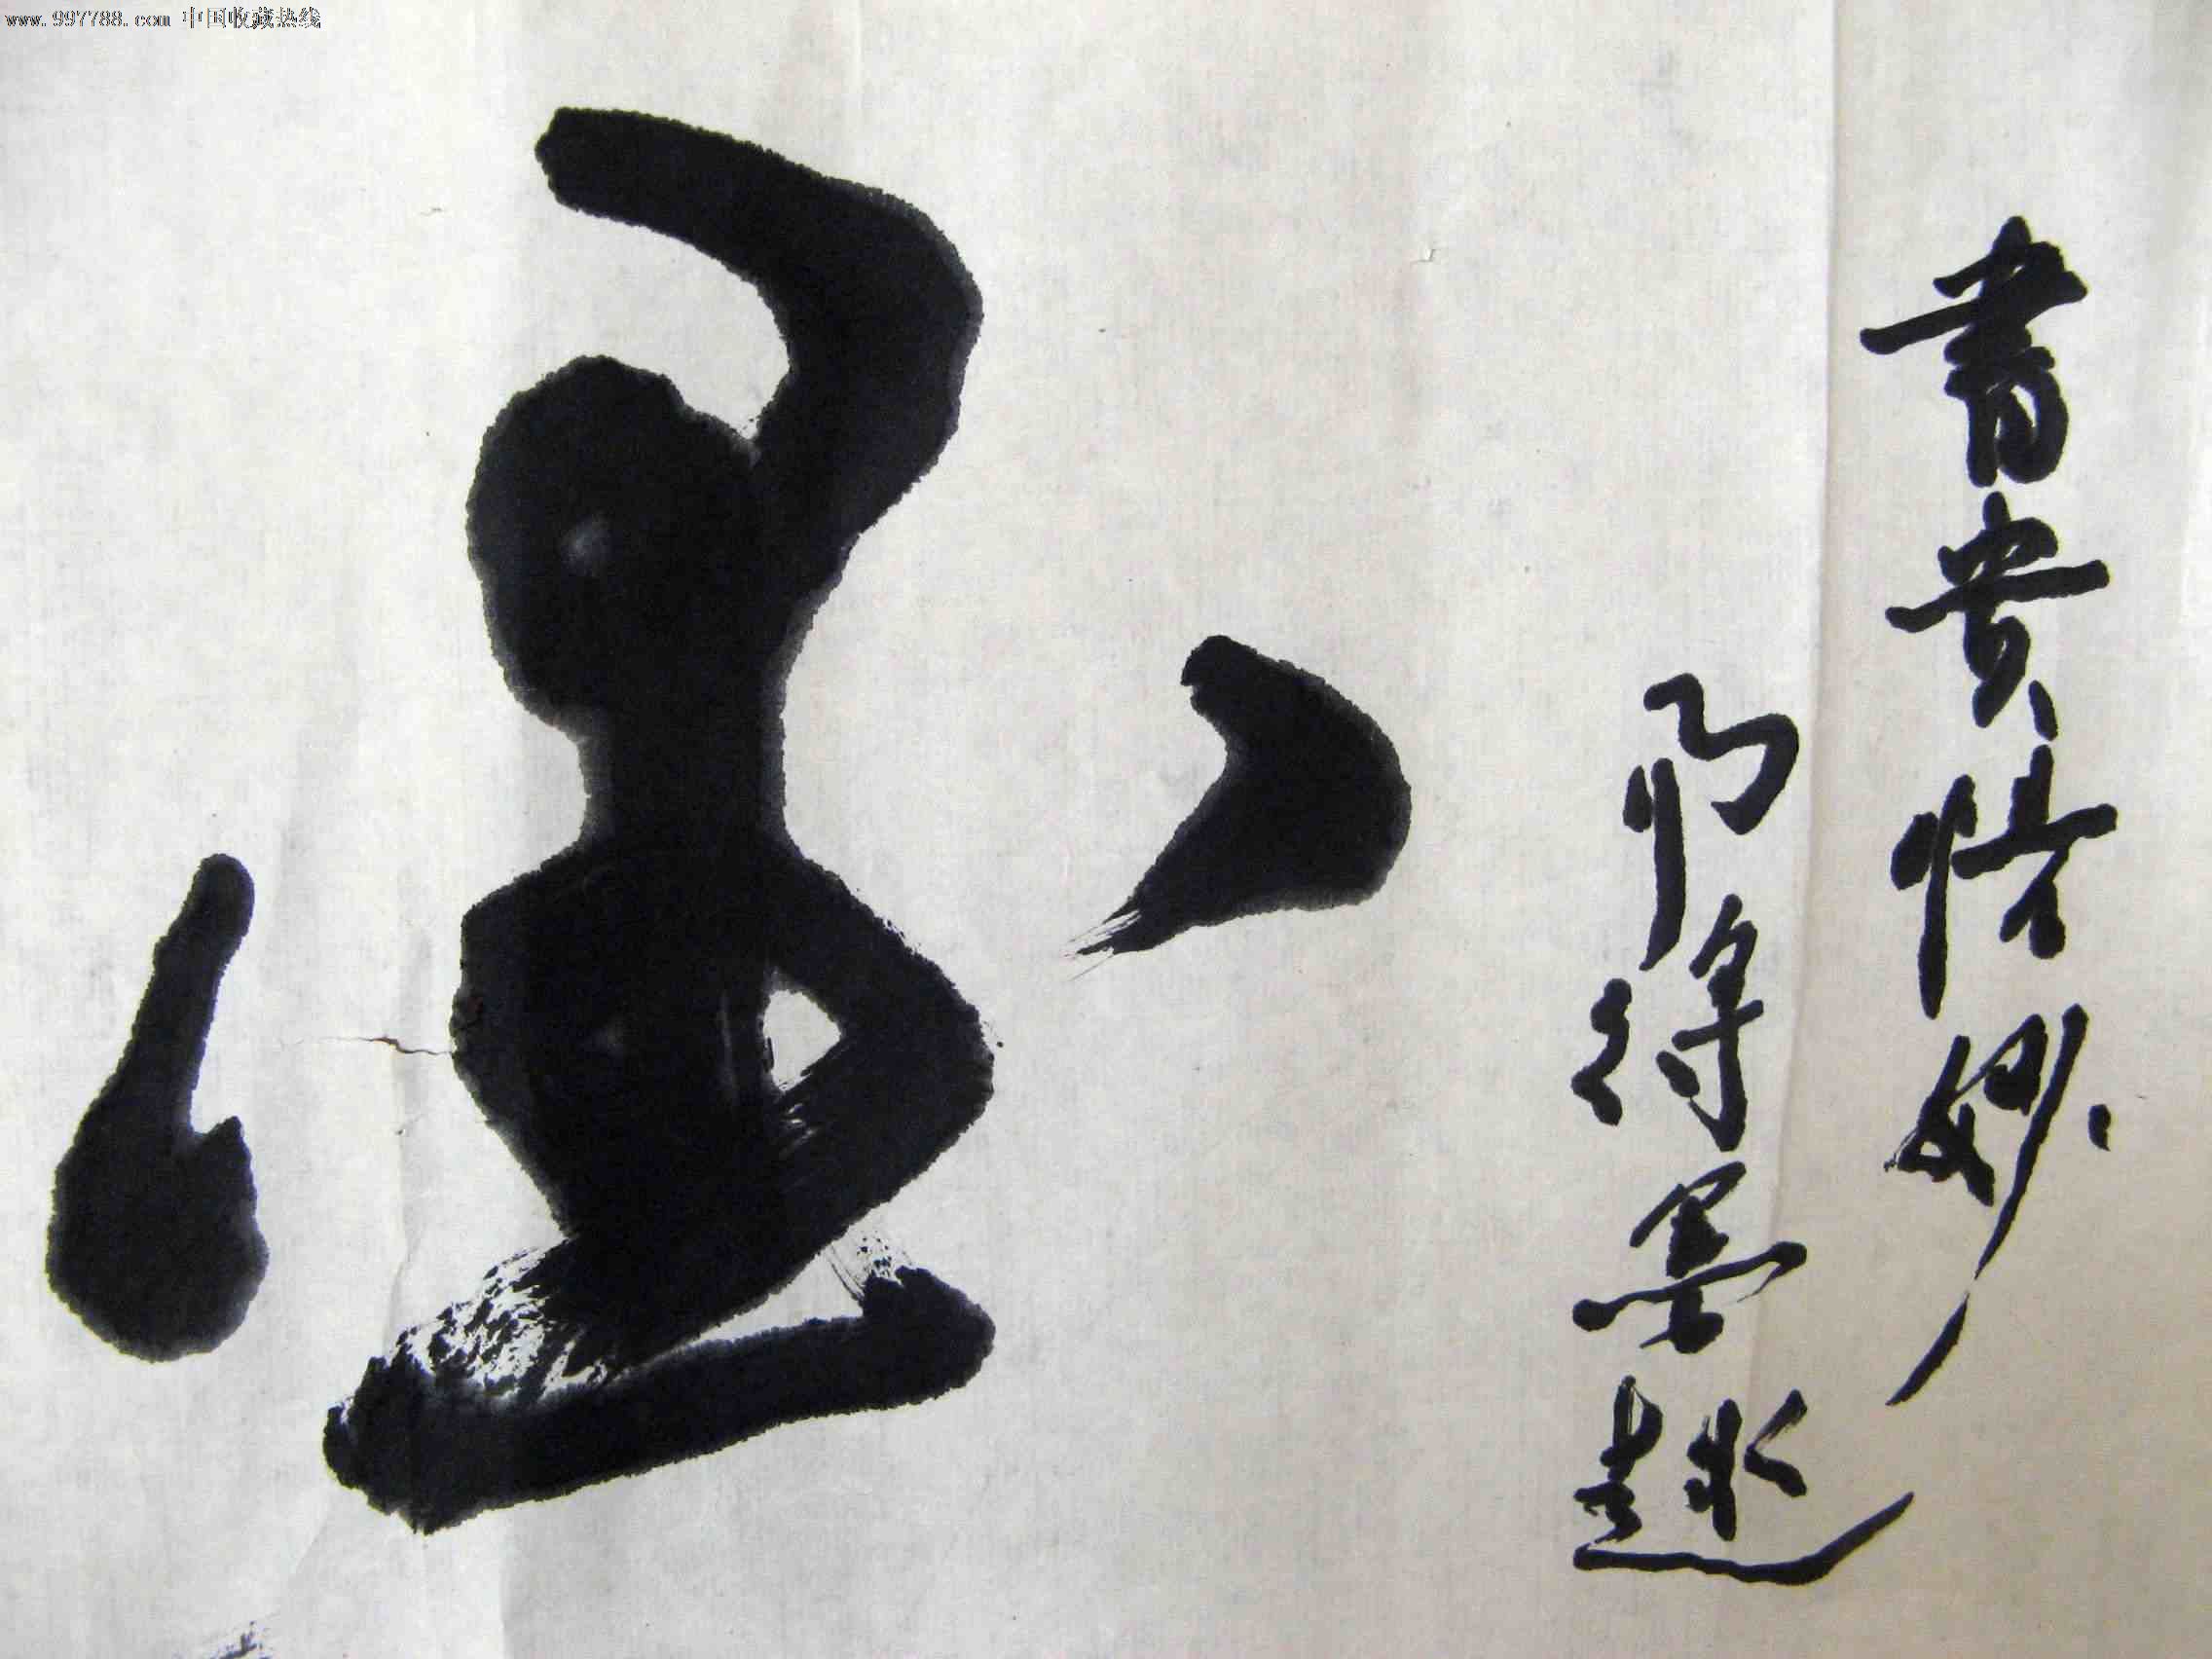 www.997788.com 中国收藏热线
書貴悟妙
得墨趣